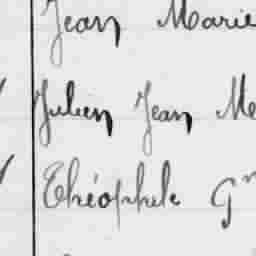 Jean Marie
Julien Jean Me
Théophile Gm